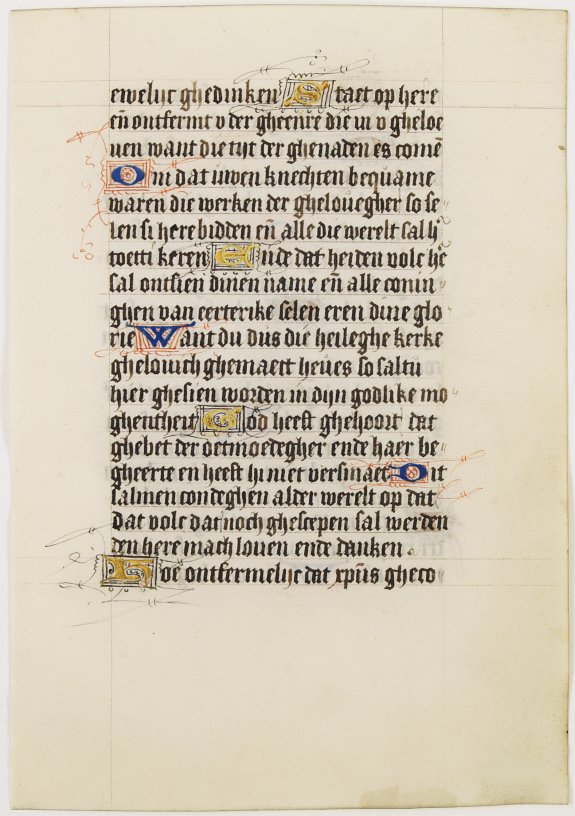 ewelijc ghedinken Staet op here
en̄ ontfermt v der gheenre die in v gheloe
uen want die tijt der ghenaden es comē
Om dat uwen knechten bequame
waren die werken der ghelouegher so se
len si here bidden en̄ alle die werelt sal h
toetti keren Ende dat heiden volc he
sal ontsien dinen name en̄ alle conin
ghen van eerterike selen eren dine glo
rie Want du dus die heileghe kerke
ghelouich ghemaect heues so saltu
hier ghesien worden in dijn godlike mo
ghentheit God heeft ghehoort dat
ghebet der oetmoedegher ende haer be
gheerte en heeft hi niet versmaet Dit
salmen condeghen alder werelt op dat
dat volc dat noch ghescepen sal werden
den here mach louen ende danken .
Hoe ontfermelijc dat xp̄us gheco